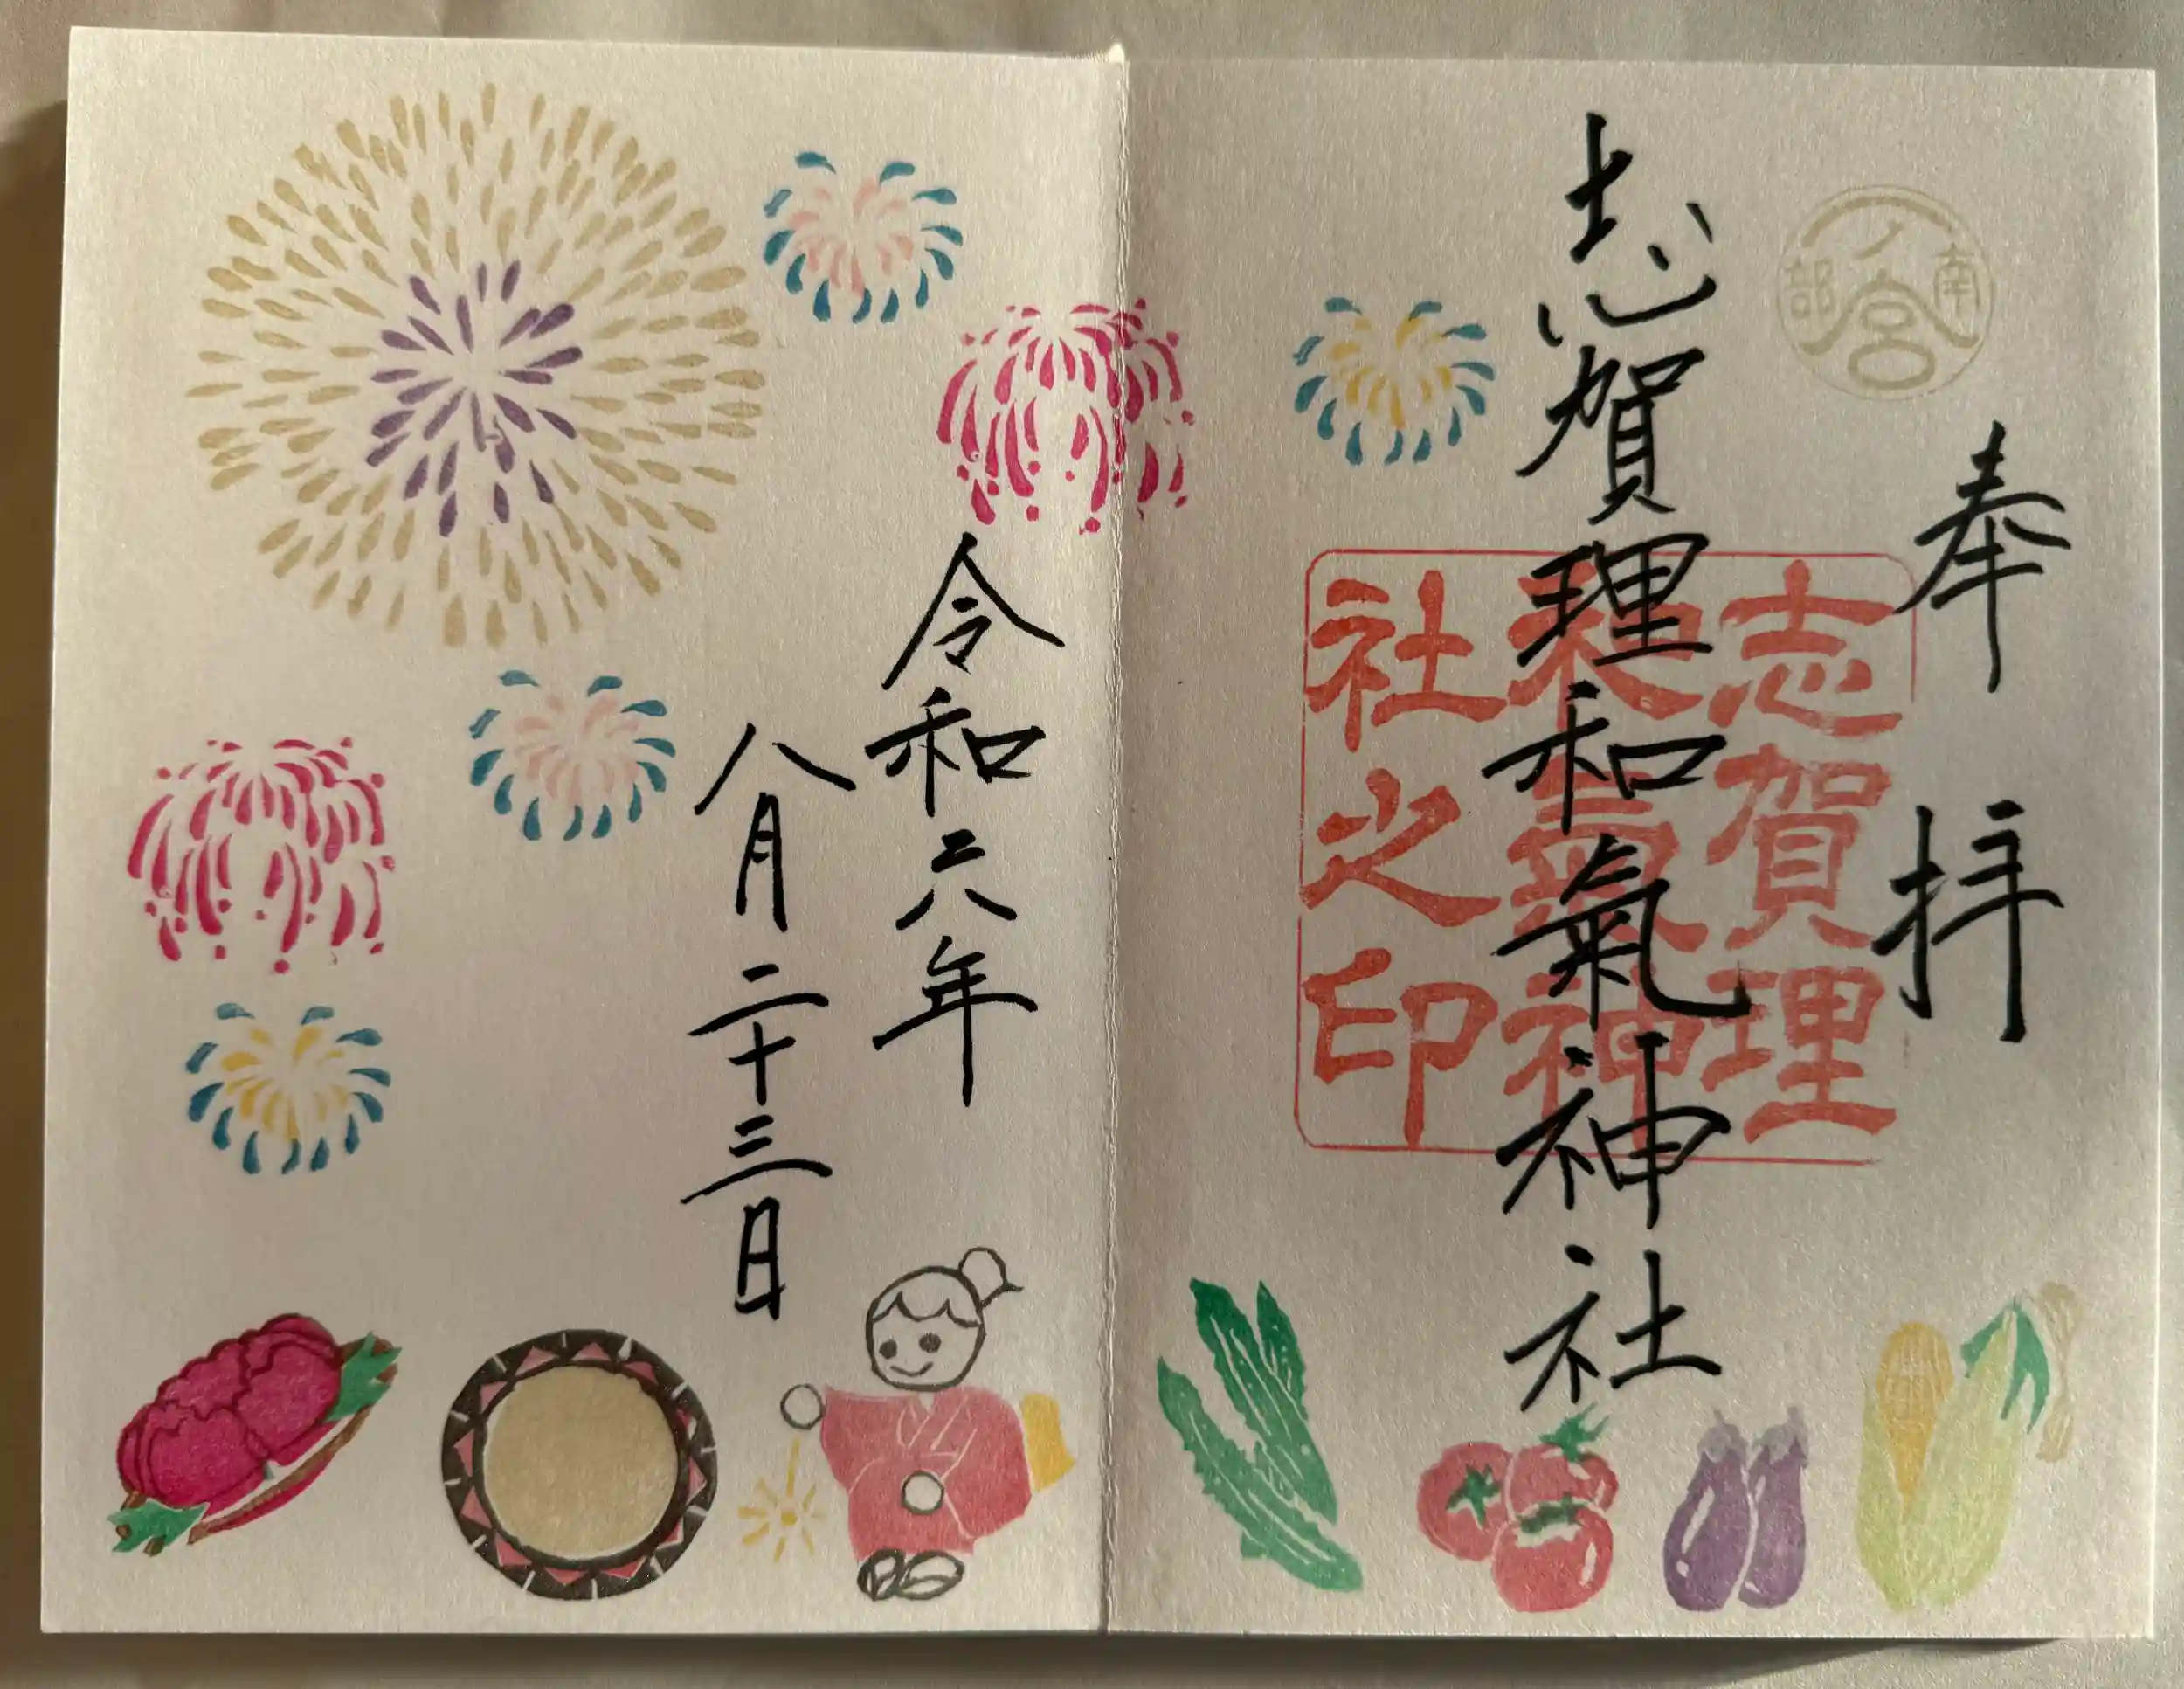 南部
一ノ宮
奉拝
志賀理和氣神社
志賀理
和氣神
社之印
令和六年
八月二十三日